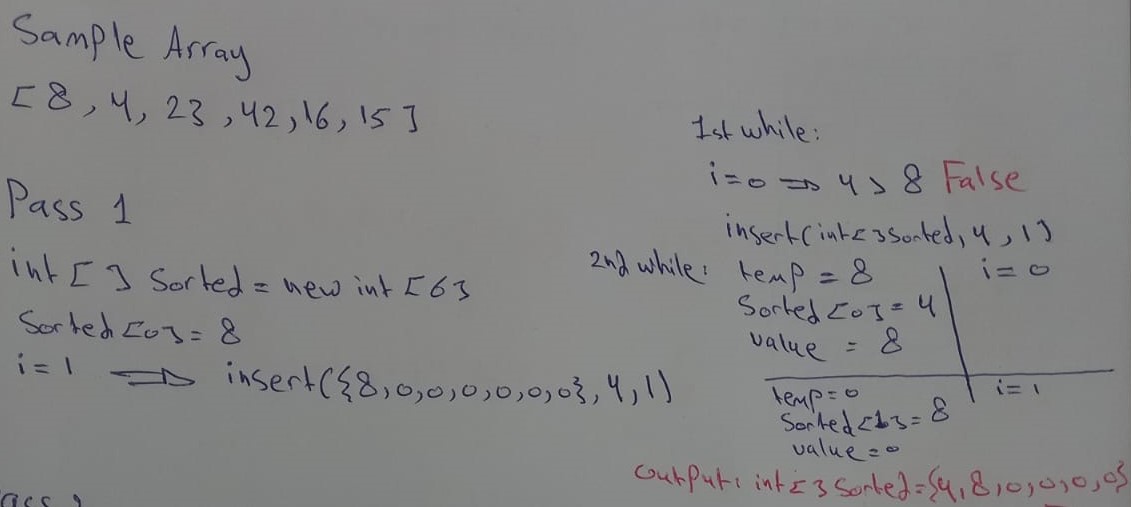 Sample Array
[ 8 , 4, 23 , 42, 16, 15 ]
Pass 1
int [ ] Sorted = new int [ 6 ]
Sorted [0] = 8
i = 1 ⟹ insert({8,0,0,0,0,0,0}, 4, 1)
1st while:
i=0 ⟹ 4 > 8 False
insert(int[]Sorted, 4, 1)
2nd while: temp = 8 i = 0
Sorted [0] = 4
value = 8
temp=0 i = 1
Sorted[1] = 8
value = 0
output: int[] Sorted={4,8,0,0,0,0}